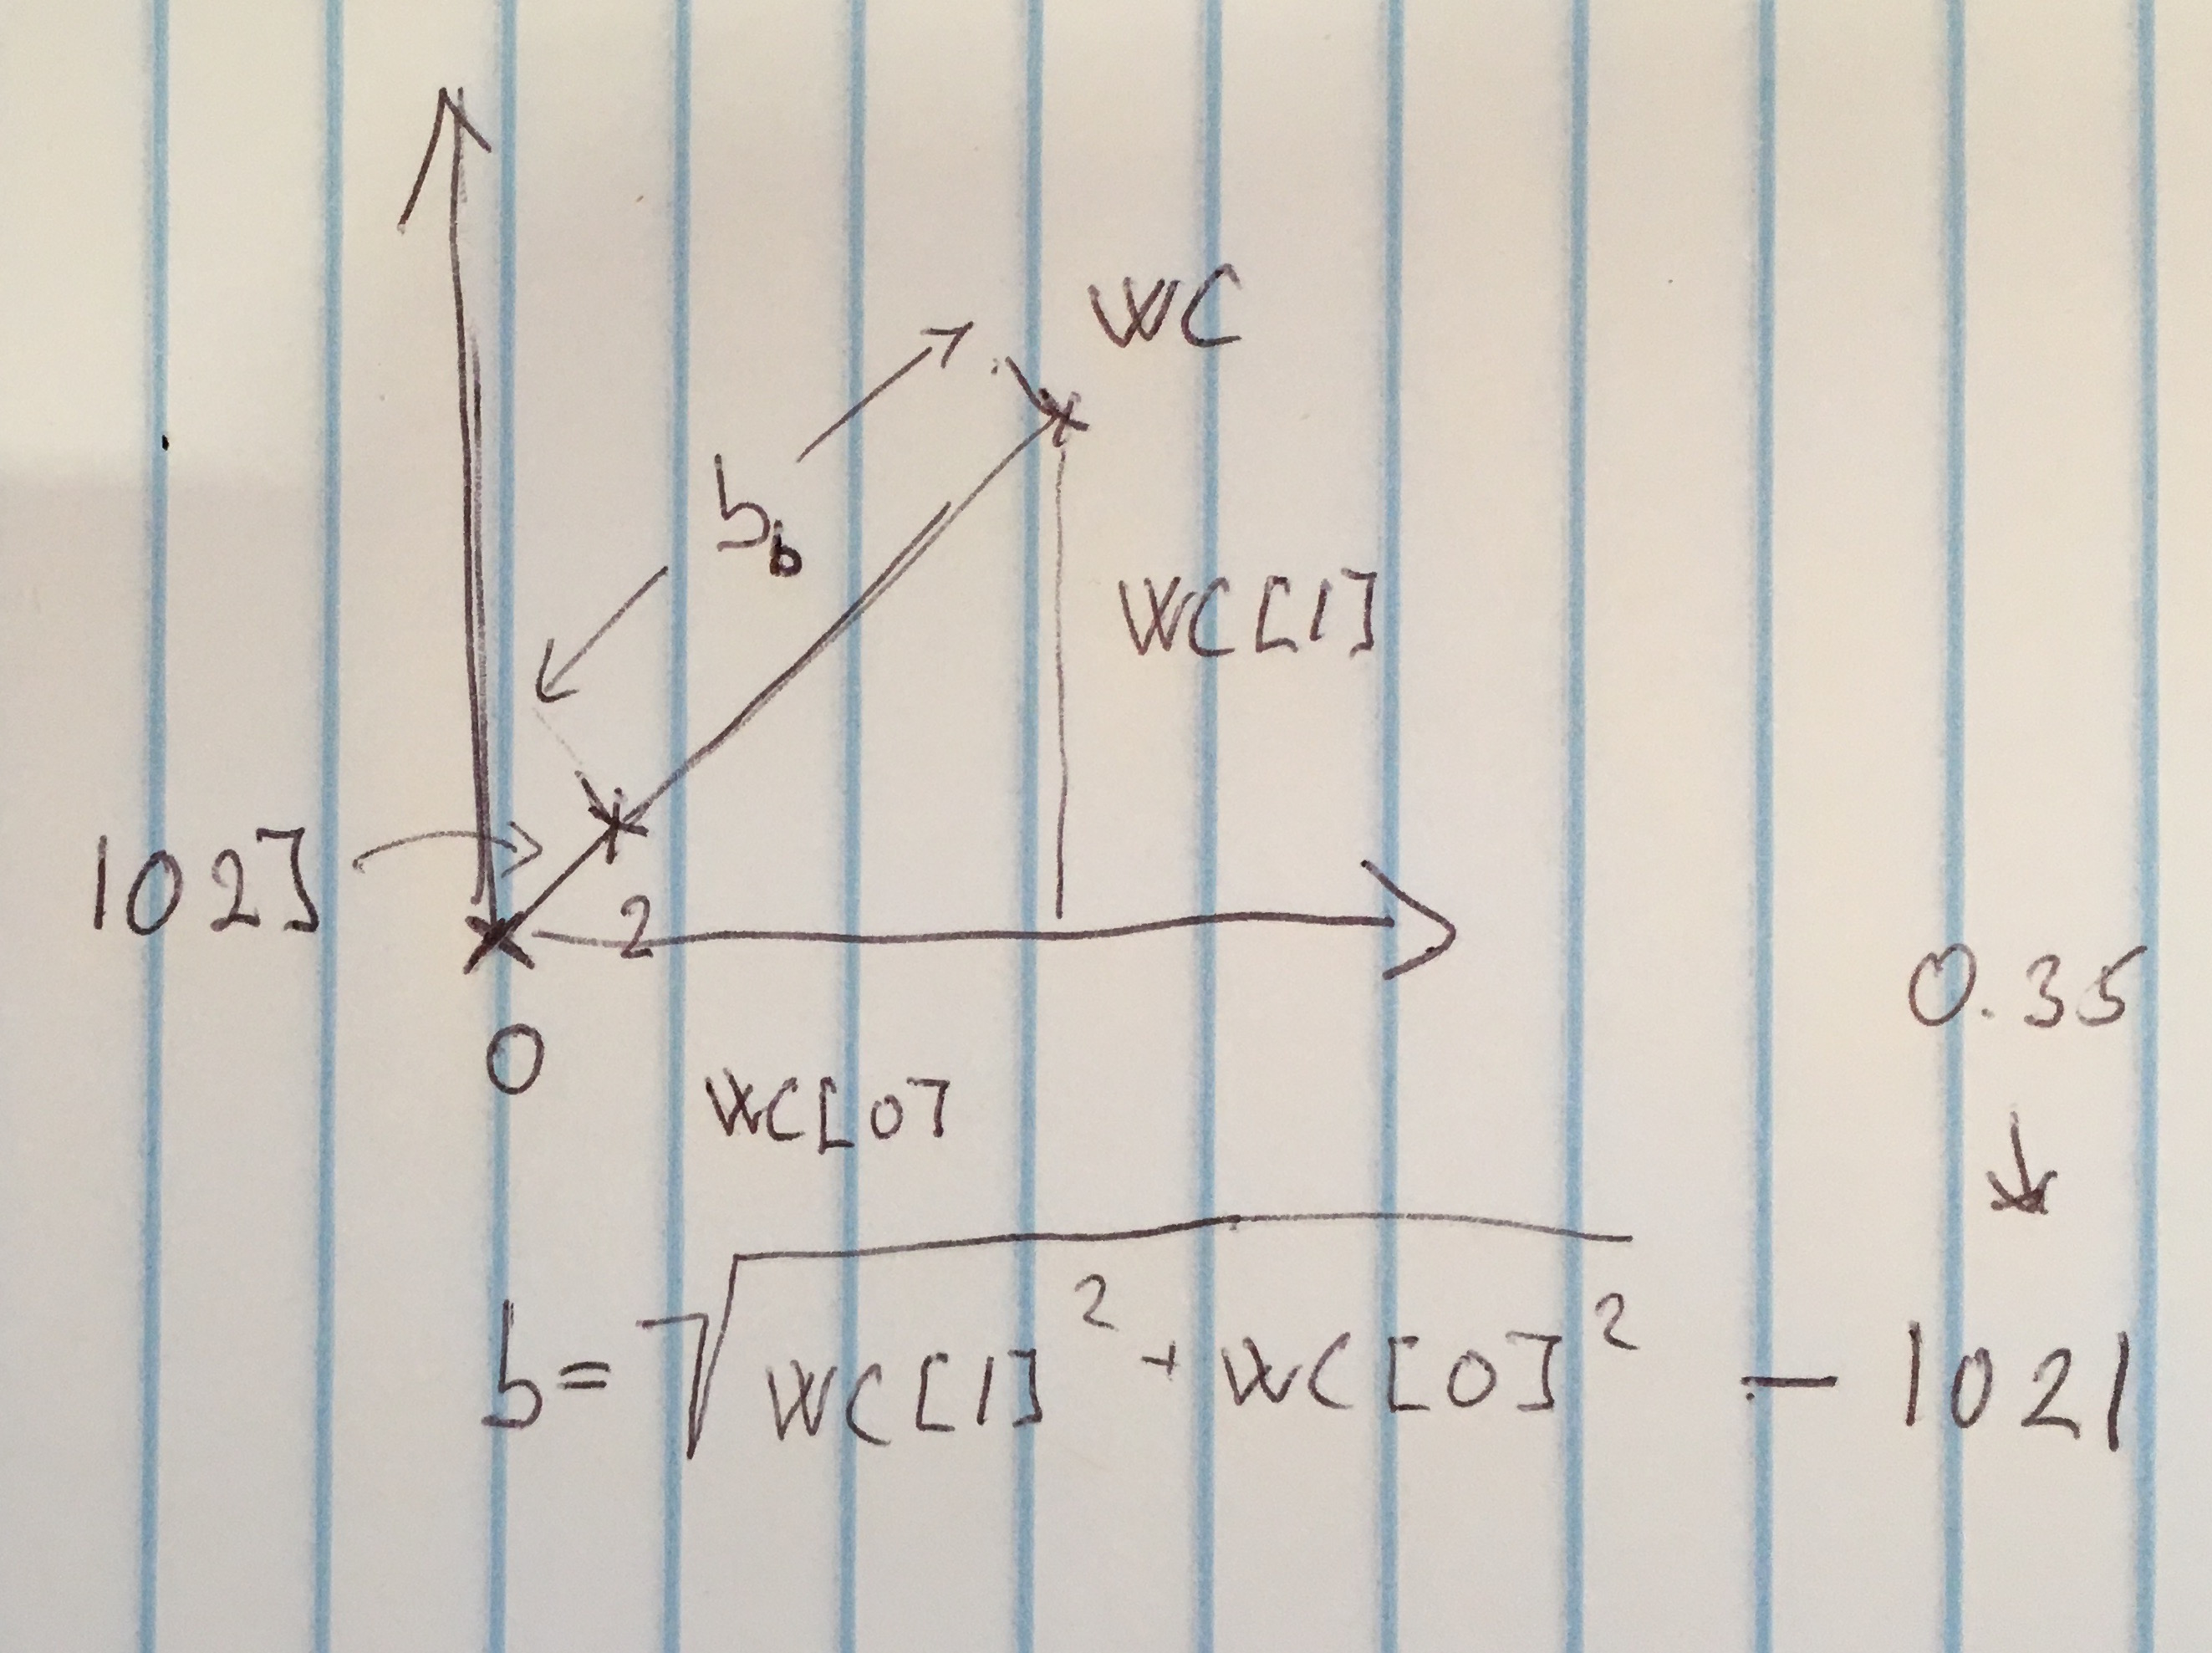 WC
b b
WC[1]
|02]
2
0
WC[0]
0.35
↓
b = √WC[1]² + WC[0]² - |02|